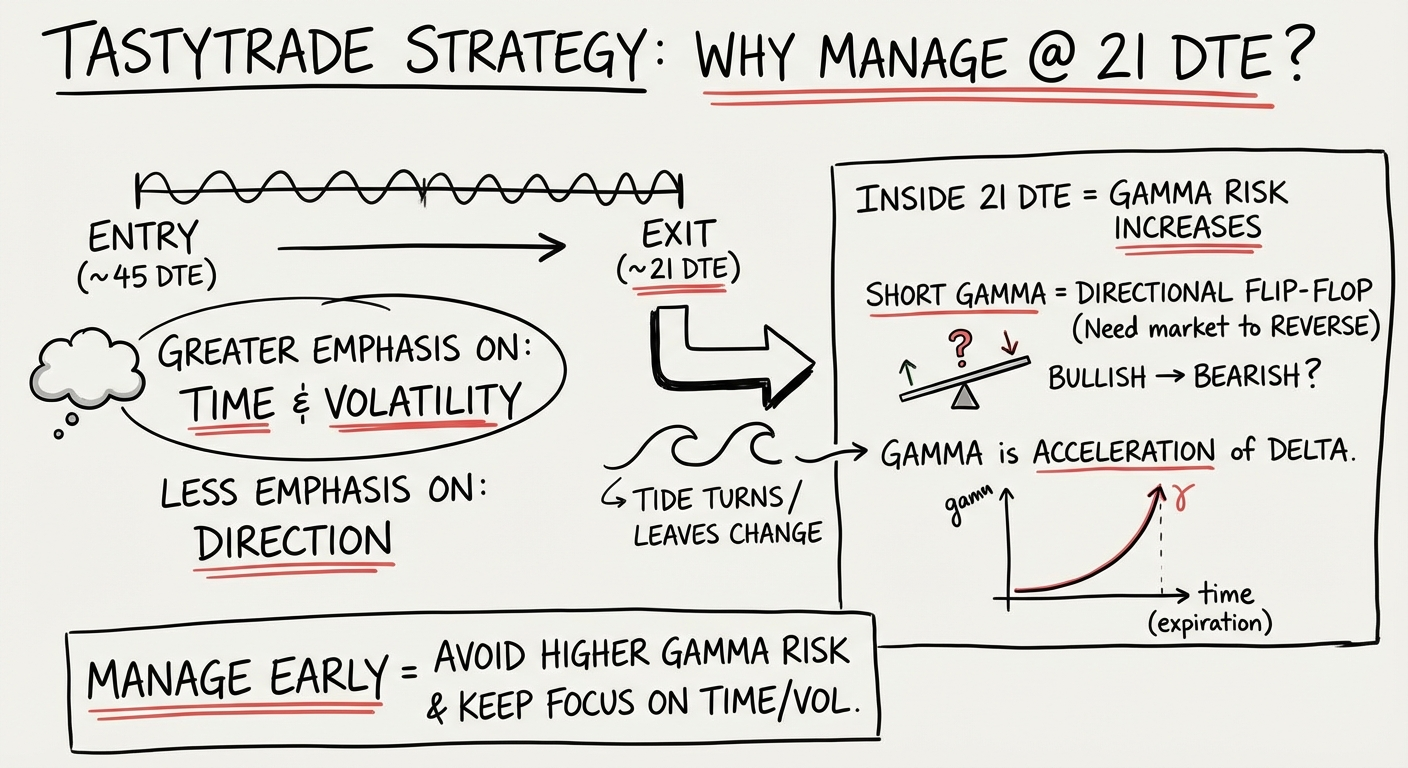 TASTYTRADE STRATEGY: WHY MANAGE @ 21 DTE?
ENTRY
(~45 DTE)
EXIT
(~21 DTE)
GREATER EMPHASIS ON:
TIME & VOLATILITY
LESS EMPHASIS ON:
DIRECTION
TIDE TURNS/
LEAVES CHANGE
INSIDE 21 DTE = GAMMA RISK
INCREASES
SHORT GAMMA = DIRECTIONAL FLIP-FLOP
(Need market to REVERSE)
?
BULLISH → BEARISH?
GAMMA is ACCELERATION of DELTA.
gamu
γ
time
(expiration)
MANAGE EARLY = AVOID HIGHER GAMMA RISK
& KEEP FOCUS ON TIME/VOL.